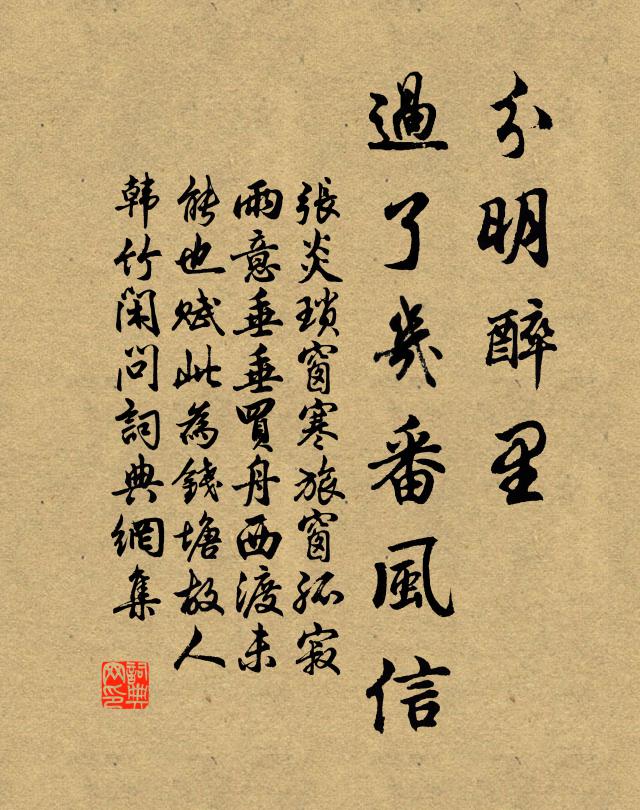 分明醉里
過了幾番風信
張炎瑣窗寒旅窗孤寂
雨意垂垂買舟西渡未
能也賦此為錢塘故人
韩竹閑問詞典網集
詞典网印